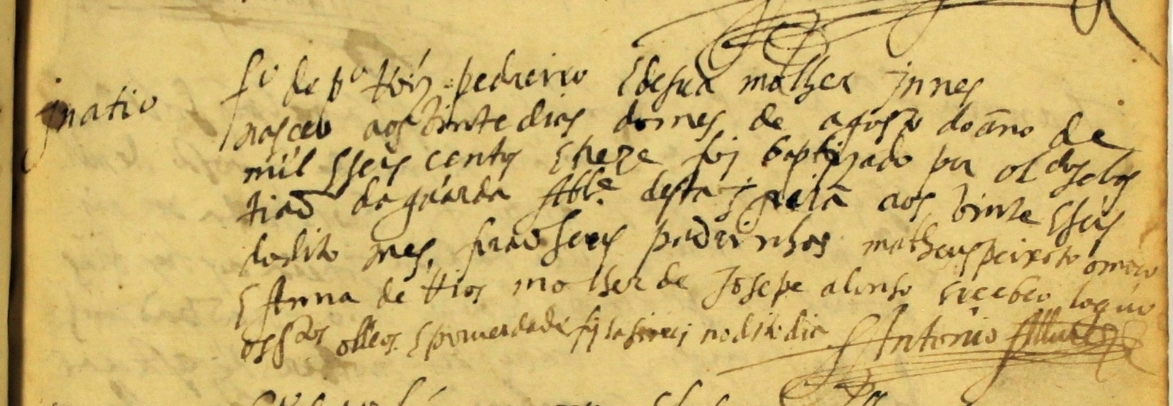 Ignatio
fº de pº Roiz pedreiro E de sua molher Innes
nasceo aos vinte dias do mes de agosto do ãno de
mil E seis centos E treze foj baptizado por o Ldo sebas
tiaõ da guarda desta Igreia aos vinte E seis
do dito mes, foraõ seus padrinhos matheus peixoto o moço
E Anna de Rios molher de Josepe alonso E recebeo loguo
os stos olleos. E por verdade fiz e asinej no dito dia Antonio